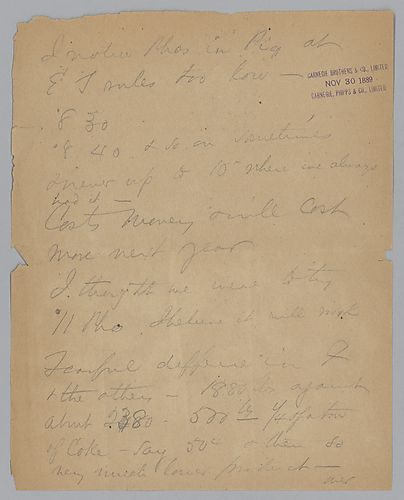 I notice Phos in Pig at
E T rules too low —
CARNEGIE BROTHERS & CO., LIMITED
NOV 30 1889
CARNEGIE, PHIPPS & CO., LIMITED
8 30
8 40 & so on sometimes
never up to 10 where we always
had it —
Costs money & will cost
more next year
I thought we were to try
11 Pho I believe it will work
Fearful difference in F
& the others — 1880 lbs against
about 2380 - 500 lbs
of Coke — say 50¢ & then so
very much lower product —
over